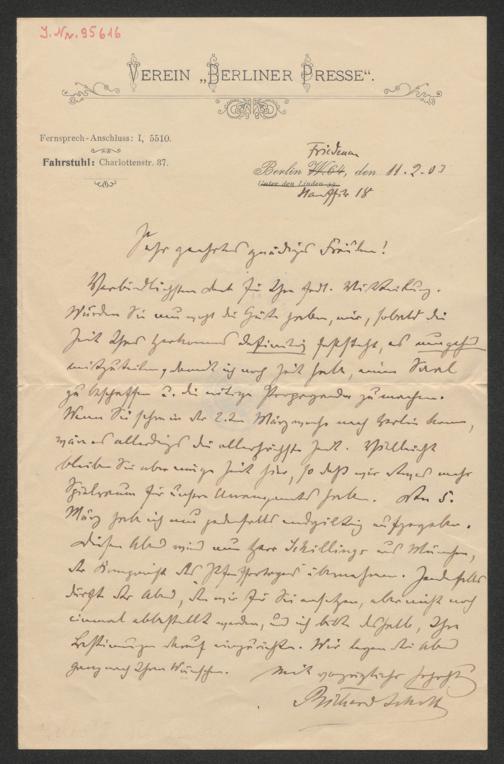 J. Nr. 95616
VEREIN „BERLINER PRESSE“.
Fernsprech-Anschluss: I, 5510.
Fahrstuhl: Charlottenstr. 37.
Friedenau
Berlin W.64, den 11.2.03
Unter den Linden
18
Sehr geehrtes gnädiges Fräulein!
Verbindlichsten Dank für Ihre gefl. Mitteilung.
Würden Sie nun noch die Güte haben, mir, sobald die
Zeit Ihres Herkommens definitiv feststeht, es umgehend
mitzuteilen, damit ich noch Zeit habe, einen Saal
zu beschaffen u. die nötige Propaganda zu machen.
Wenn Sie schon in der 2ten Märzwoche nach Berlin kommen,
wäre es allerdings die allerhöchste Zeit. Vielleicht
bleiben Sie aber einige Zeit hier, so daß wir etwas mehr
Spielraum für unser Arrangement haben. Den 5.
März habe ich nun jedenfalls endgültig aufgegeben.
Diesen Abend wird nun Herr Schillings aus München,
der Komponist des übernehmen. Jedenfalls
dürfte der Abend, den wir für Sie ansetzen, aber nicht noch
einmal abbestellt werden, und ich bitte deshalb, Ihre
Bestimmungen darauf einzurichten. Wir legen den Abend
ganz nach Ihren Wünschen.
Mit vorzüglicher Hochacht
Richard Schott